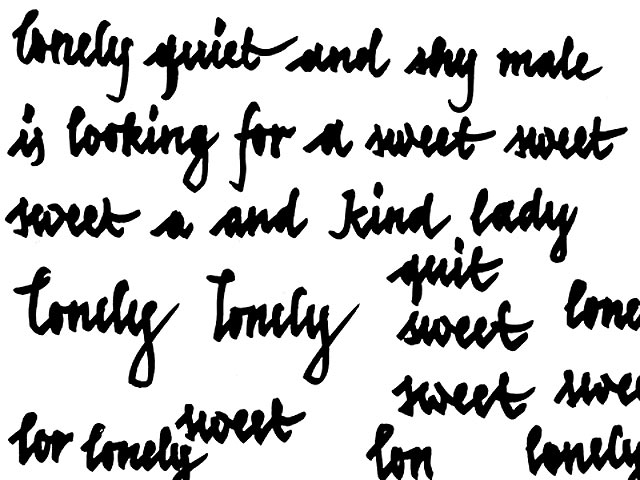 lonely quiet and shy male
is looking for a sweet sweet
sweet a and kind lady
quit
lonely lonely sweet lone
sweet swee
lor lonely sweet lon lonely